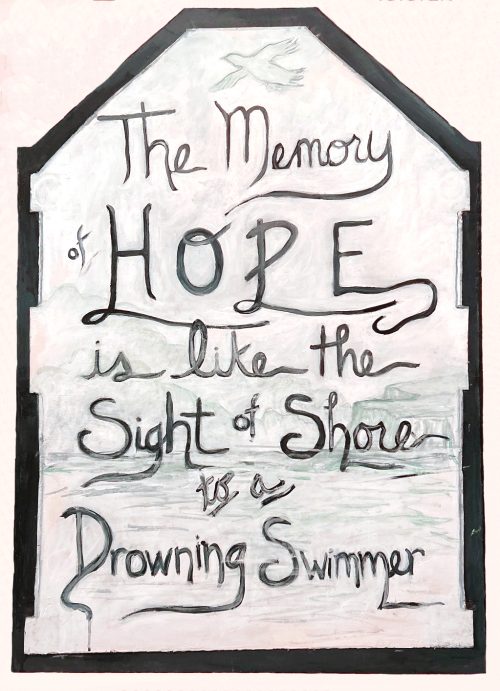 The Memory
of HOPE
is like the
Sight of Shore
to a
Drowning Swimmer